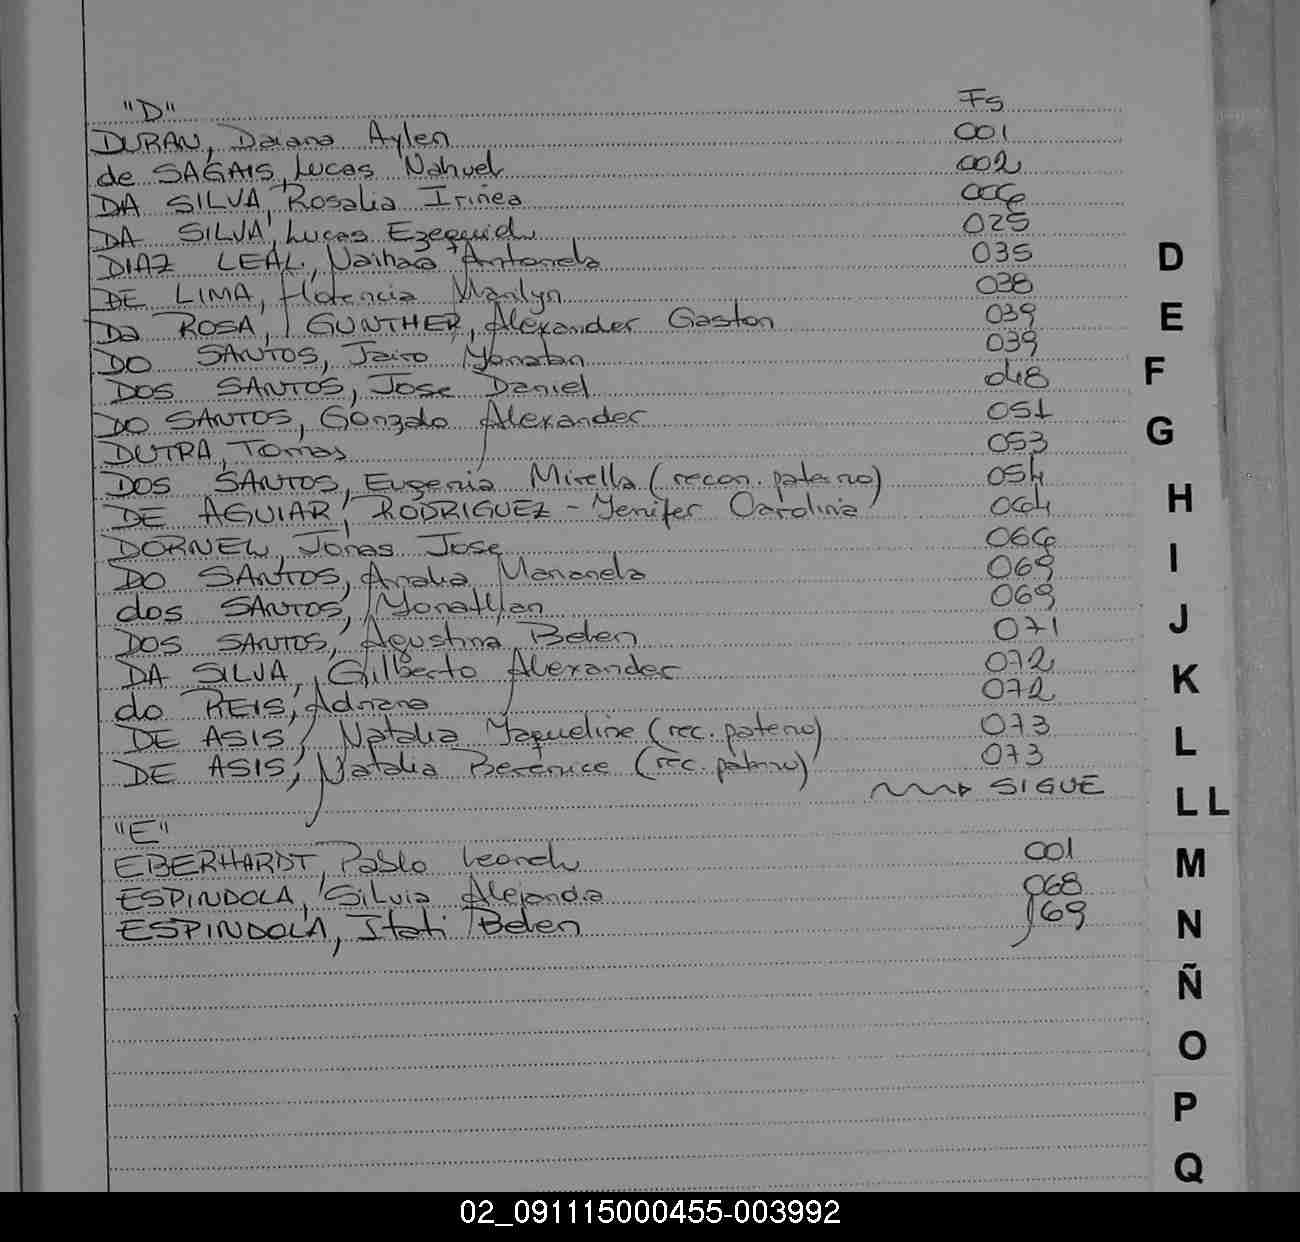 "D" Fs
DURAN, Daiana Aylen 001
de SAGAIS, Lucas Nahuel 002
DA SILVA, Rosalia Irinea 006
DA SILVA, Lucas Ezequiel 025
DIAZ LEAL, Antonela 035
DE LIMA, Florencia Marilyn 038
Da ROSA, GUNTHER, Alexander Gaston 039
DO SANTOS, Jairo Yonatan 039
DOS SANTOS, Jose Daniel 048
DO SANTOS, Gonzalo Alexander 051
DUTRA, Tomas 053
DOS SANTOS, Eugenia Mirella (recon. paterno) 054
DE AGUIAR, RODRIGUEZ - Yenifer Carolina 064
DORNEL, Jonas Jose 066
DO SANTOS, Analia Marianela 069
dos SANTOS, Yonathan 069
DOS SANTOS, Agustina Belen 071
DA SILVA, Gilberto Alexander 072
do REIS, Adriana 072
DE ASIS, Natalia Yaqueline (rec. paterno) 073
DE ASIS, Natalia Berenice (rec. paterno) 073
SIGUE
"E"
EBERHARDT, Pablo 001
ESPINDOLA, Silvia Alejandra 068
ESPINDOLA, Itati Belen 69
D
E
F
G
H
I
J
K
L
LL
M
N
Ñ
O
P
Q
02_091115000455-003992